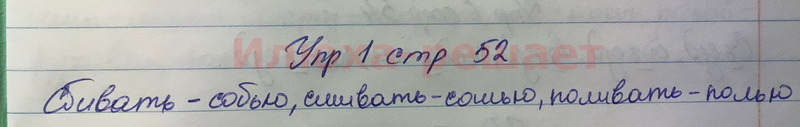 Упр 1 стр 52
Сбивать - собью, сшивать - сошью, поливать - полью